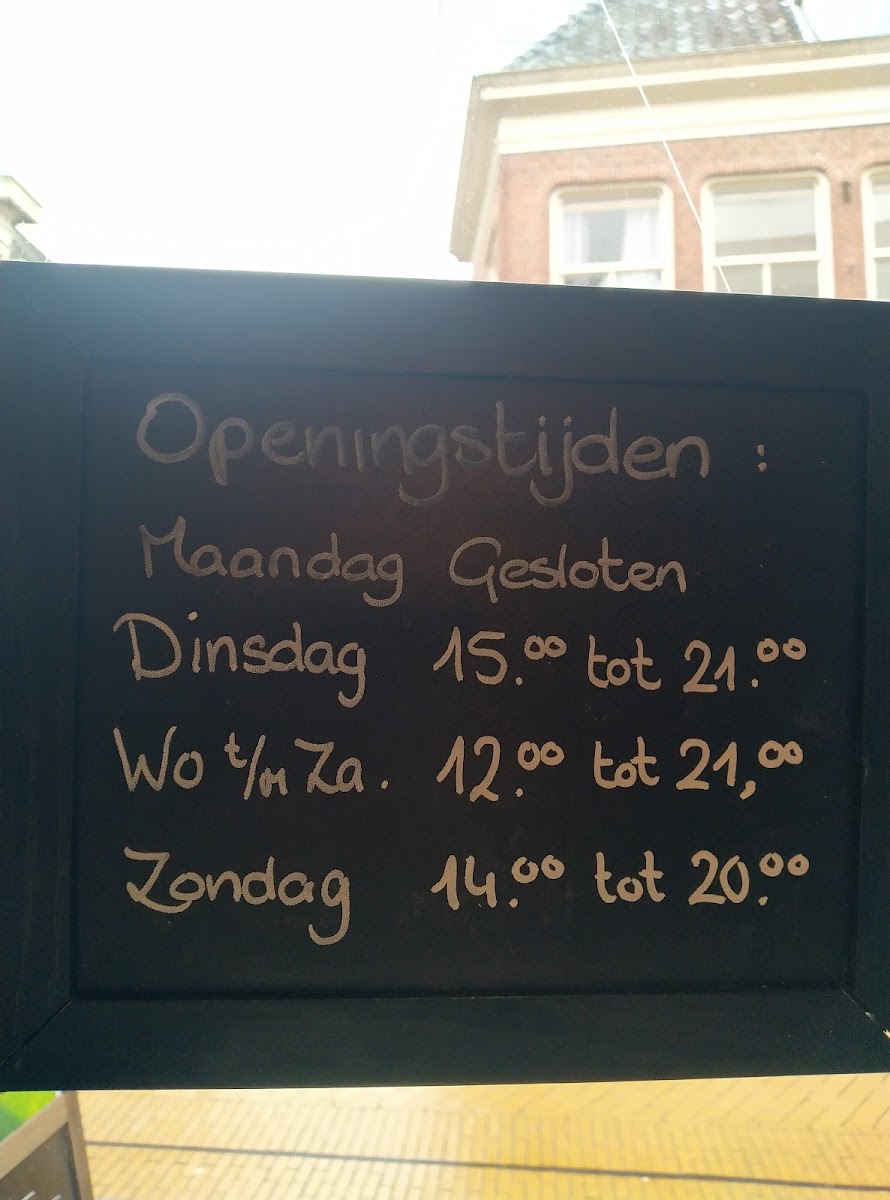 Openingstijden :
Maandag Gesloten
Dinsdag 15.00 tot 21.00
Wo t/m Za. 12.00 tot 21,00
Zondag 14.00 tot 20.00